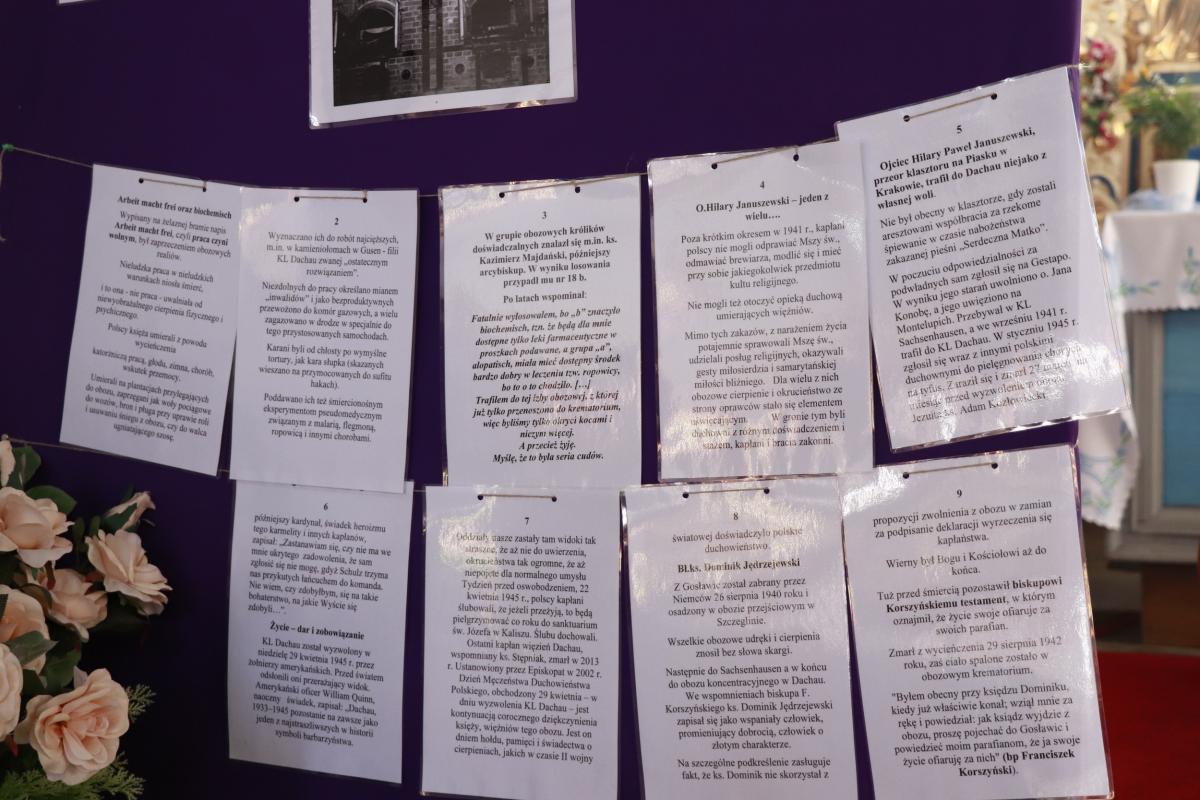 Arbeit macht frei oraz biochemisch
Wypisany na żelaznej bramie napis
Arbeit macht frei, czyli praca czyni
wolnym, był zaprzeczeniem obozowych
realiów.
Nieludzka praca w nieludzkich
warunkach niosła śmierć,
i to ona - nie praca - uwalniała od
niewyobrażalnego cierpienia fizycznego i
psychicznego.
Polscy księża umierali z powodu
wycieńczenia
katorżniczą pracą, głodu, zimna, chorób,
wskutek przemocy.
Umierali na plantacjach przylegających
do obozu, zaprzęgani jak woły pociągowe
do wozów, bron i pługa przy uprawie roli
i usuwaniu śniegu z obozu, czy do walca
ugniatającego szosę.
2
Wyznaczano ich do robót najcięższych,
m.in. w kamieniołomach w Gusen - filii
KL Dachau zwanej „ostatecznym
rozwiązaniem".
Niezdolnych do pracy określano mianem
„inwalidów" i jako bezproduktywnych
przewożono do komór gazowych, a wielu
zagazowano w drodze w specjalnie do
tego przystosowanych samochodach.
Karani byli od chłosty po wymyślne
tortury, jak kara słupka (skazanych
wieszano na przymocowanych do sufitu
hakach).
Poddawano ich też śmiercionośnym
eksperymentom pseudomedycznym
związanym z malarią, flegmoną,
ropowicą i innymi chorobami.
3
W grupie obozowych królików
doświadczalnych znalazł się m.in. ks.
Kazimierz Majdański, późniejszy
arcybiskup. W wyniku losowania
przypadł mu nr 18 b.
Po latach wspominał:
Fatalnie wylosowałem, bo „b" znaczyło
biochemisch, tzn. że będą dla mnie
dostępne tylko leki farmaceutyczne w
proszkach podawane, a grupa „a",
alopatisch, miała mieć dostępny środek
bardzo dobry w leczeniu tzw. ropowicy,
bo to o to chodziło. [...]
Trafiłem do tej izby obozowej, z której
już tylko przenoszono do krematorium,
więc byliśmy tylko okryci kocami i
niczym więcej.
A przecież żyję.
Myślę, że to była seria cudów.
4
O.Hilary Januszewski – jeden z
wielu….
Poza krótkim okresem w 1941 r., kapłani
polscy nie mogli odprawiać Mszy św.,
odmawiać brewiarza, modlić się i mieć
przy sobie jakiegokolwiek przedmiotu
kultu religijnego.
Nie mogli też otoczyć opieką duchową
umierających więźniów.
Mimo tych zakazów, z narażeniem życia
potajemnie sprawowali Mszę św.,
udzielali posług religijnych, okazywali
gesty miłosierdzia i samarytańskiej
miłości bliźniego. Dla wielu z nich
obozowe cierpienie i okrucieństwo ze
strony oprawców stało się elementem
uświęcającym. W gronie tym byli
duchowni z różnym doświadczeniem i
stażem, kapłani i bracia zakonni.
5
Ojciec Hilary Paweł Januszewski,
przeor klasztoru na Piasku w
Krakowie, trafił do Dachau niejako z
własnej woli.
Nie był obecny w klasztorze, gdy zostali
aresztowani współbracia za rzekome
śpiewanie w czasie nabożeństwa
zakazanej pieśni „Serdeczna Matko".
W poczuciu odpowiedzialności za
podwładnych sam zgłosił się na Gestapo.
W wyniku jego starań uwolniono o. Jana
Konobę, a jego uwięziono na
Montelupich. Przebywał w KL
Sachsenhausen, a we wrześniu 1941 r.
trafił do KL Dachau. W styczniu 1945 r.
zgłosił się wraz z innymi polskimi
duchownymi do pielęgnowania chorych
na tyfus. Zaraził się i zmarł 27 marca na
miesiąc przed wyzwoleniem obozu.
Jezuita ks. Adam Kozłowiecki,
6
późniejszy kardynał, świadek heroizmu
tego karmelity i innych kapłanów,
zapisał: „Zastanawiam się, czy nie ma we
mnie ukrytego zadowolenia, że sam
zgłosić się nie mogę, gdyż Schulz trzyma
nas przykutych łańcuchem do komanda.
Nie wiem, czy zdobyłbym, się na takie
bohaterstwo, na jakie Wyście się
zdobyli…".
Życie – dar i zobowiązanie
KL Dachau został wyzwolony w
niedzielę 29 kwietnia 1945 r. przez
żołnierzy amerykańskich. Przed światem
odsłonili oni przerażający widok.
Amerykański oficer William Quinn,
naoczny świadek, zapisał: „Dachau,
1933–1945 pozostanie na zawsze jako
jeden z najstraszliwszych w historii
symboli barbarzyństwa.
7
Oddziały nasze zastały tam widoki tak
straszne, że aż nie do uwierzenia,
okrucieństwa tak ogromne, że aż
niepojęte dla normalnego umysłu
Tydzień przed oswobodzeniem, 22
kwietnia 1945 r., polscy kapłani
ślubowali, że jeżeli przeżyją, to będą
pielgrzymować co roku do sanktuarium
św. Józefa w Kaliszu. Ślubu dochowali.
Ostatni kapłan więzień Dachau,
wspomniany ks. Stępniak, zmarł w 2013
r. Ustanowiony przez Episkopat w 2002 r.
Dzień Męczeństwa Duchowieństwa
Polskiego, obchodzony 29 kwietnia – w
dniu wyzwolenia KL Dachau – jest
kontynuacją corocznego dziękczynienia
księży, więźniów tego obozu. Jest on
dniem hołdu, pamięci i świadectwa o
cierpieniach, jakich w czasie II wojny
8
światowej doświadczyło polskie
duchowieństwo.
Bł.ks. Dominik Jędrzejewski
Z Gosławic został zabrany przez
Niemców 26 sierpnia 1940 roku i
osadzony w obozie przejściowym w
Szczeglinie.
Wszelkie obozowe udręki i cierpienia
znosił bez słowa skargi.
Następnie do Sachsenhausen a w końcu
do obozu koncentracyjnego w Dachau.
We wspomnieniach biskupa F.
Korszyńskiego ks. Dominik Jędrzejewski
zapisał się jako wspaniały człowiek,
promieniujący dobrocią, człowiek o
złotym charakterze.
Na szczególne podkreślenie zasługuje
fakt, że ks. Dominik nie skorzystał z
9
propozycji zwolnienia z obozu w zamian
za podpisanie deklaracji wyrzeczenia się
kapłaństwa.
Wierny był Bogu i Kościołowi aż do
końca.
Tuż przed śmiercią pozostawił biskupowi
Korszyńskiemu testament, w którym
oznajmił, że życie swoje ofiaruje za
swoich parafian.
Zmarł z wycieńczenia 29 sierpnia 1942
roku, zaś ciało spalone zostało w
obozowym krematorium.
"Byłem obecny przy księdzu Dominiku,
kiedy już właściwie konał; wziął mnie za
rękę i powiedział: jak ksiądz wyjdzie z
obozu, proszę pojechać do Gosławic i
powiedzieć moim parafianom, że ja swoje
życie ofiaruję za nich" (bp Franciszek
Korszyński).